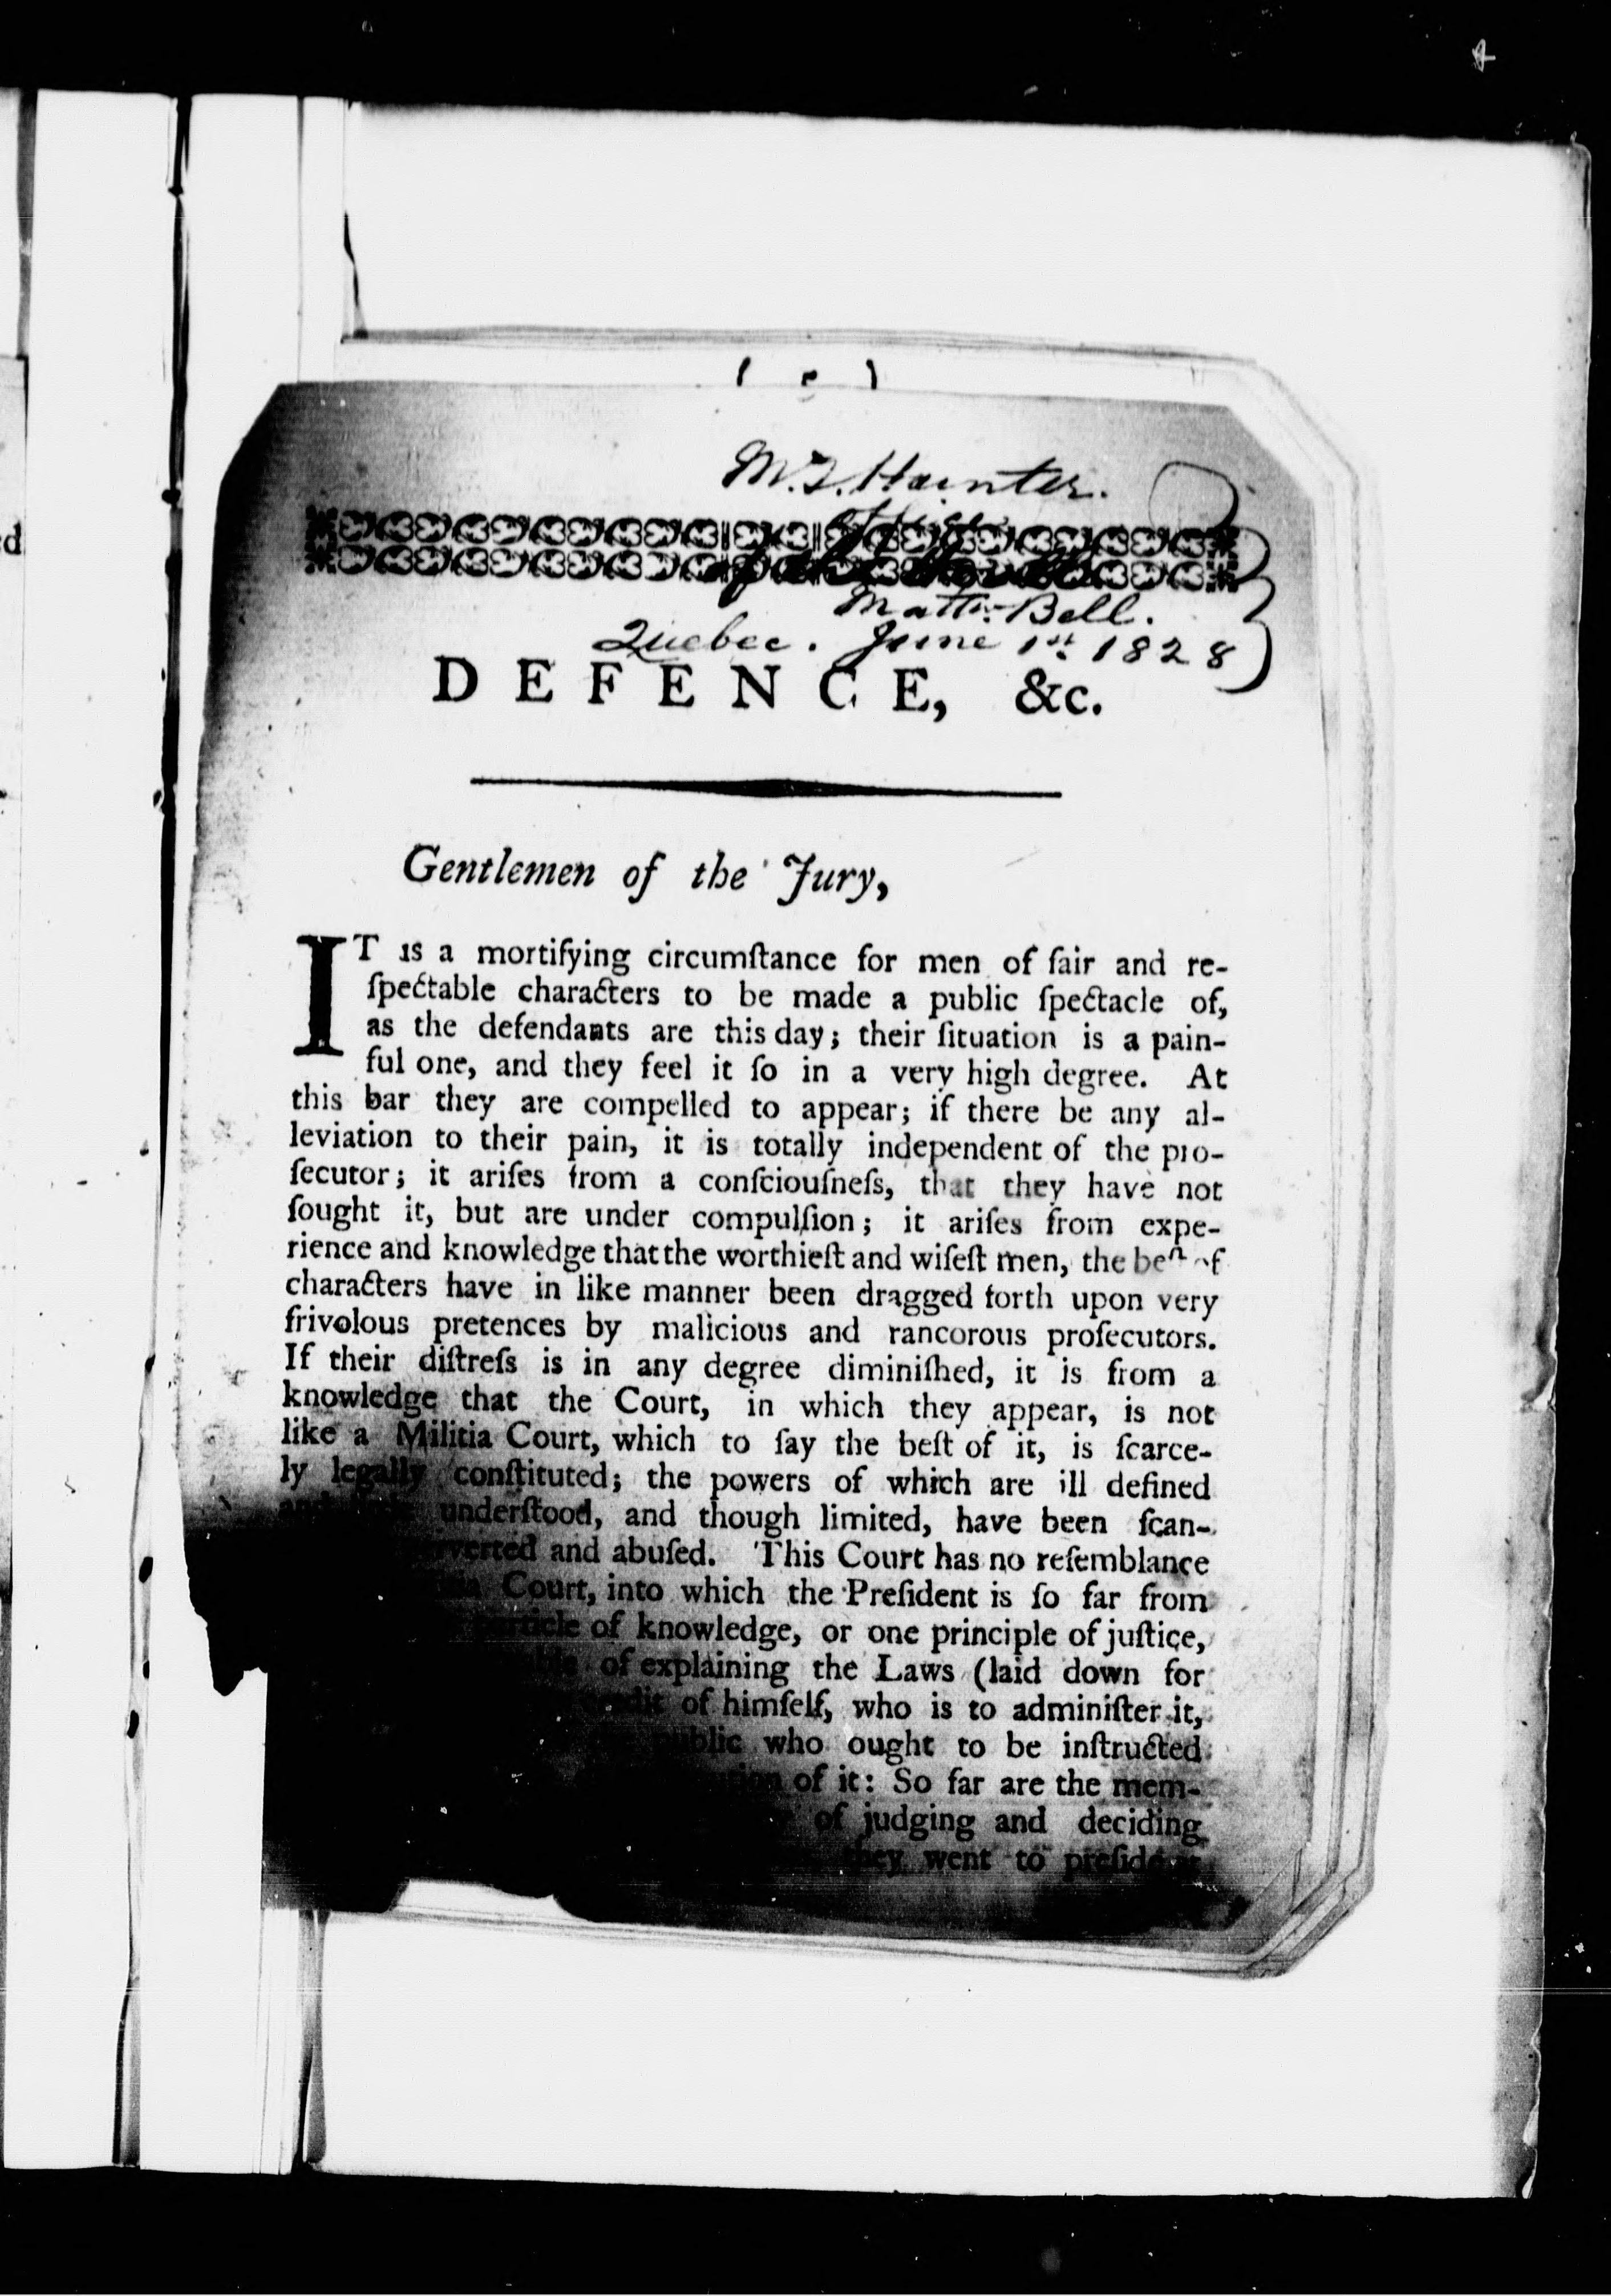 Mattw. Bell.
Quebec. June 1st. 1828
DEFENCE, &c.
Gentlemen of the Jury,
IT is a mortifying circumſtance for men of fair and re-
ſpectable characters to be made a public ſpectacle of,
as the defendants are this day; their ſituation is a pain-
ful one, and they feel it ſo in a very high degree. At
this bar they are compelled to appear; if there be any al-
leviation to their pain, it is totally independent of the pro-
ſecutor; it ariſes from a conſciouſneſs, that they have not
ſought it, but are under compulſion; it ariſes from expe-
rience and knowledge that the worthieſt and wiſeſt men, the beſt of
characters have in like manner been dragged forth upon very
frivolous pretences by malicious and rancorous proſecutors.
If their diſtreſs is in any degree diminiſhed, it is from a
knowledge that the Court, in which they appear, is not
like a Militia Court, which to ſay the beſt of it, is ſcarce-
ly legally conſtituted; the powers of which are ill defined
underſtood, and though limited, have been ſcan-
and abuſed. This Court has no reſemblance
Court, into which the Preſident is ſo far from
particle of knowledge, or one principle of juſtice,
of explaining the Laws (laid down for
credit of himſelf, who is to adminiſter it,
public who ought to be inſtructed
of it: So far are the mem-
of judging and deciding
they went to preſident